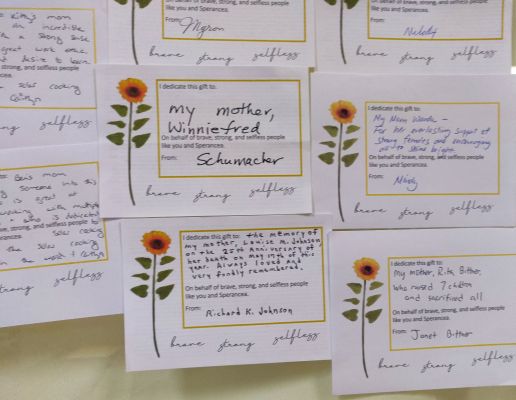 to Kitty's mom
an incredible
a strong sense
great work ethic
desire to learn
strong, and selfless people
solar cooking
Caitlyn
selfless
From:
Myron
brave strong selfless
like you and Sperancea.
From:
Melody
brave strong selfless
to Ben's mom
someone into this
is great at
working with multiple
who is dedicated
solar cooking
the solar cooking
strong selfless
I dedicate this gift to:
my mother,
Winniefred
On behalf of brave, strong, and selfless people
like you and Sperancea.
From:
Schumacher
brave strong selfless
I dedicate this gift to:
My Mom Wanda -
For her everlasting support of
strong females and encouraging
us to shine bright.
On behalf of brave, strong, and selfless people
like you and Sperancea.
From:
Melody
brave strong selfless
I dedicate this gift to: the memory of
my mother, Louise M. Johnson
on the 25th Anniversary of
her death on may 17th of this
year. Always loved and
very fondly remembered.
On behalf of brave, strong, and selfless people
like you and Sperancea.
From:
Richard K. Johnson
brave strong selfless
I dedicate this gift to:
My mother, Rita Bitther,
who raised 7 children
and sacrificed all
On behalf of brave, strong, and selfless people
like you and Sperancea.
From:
Janet Bitther
brave strong selfless